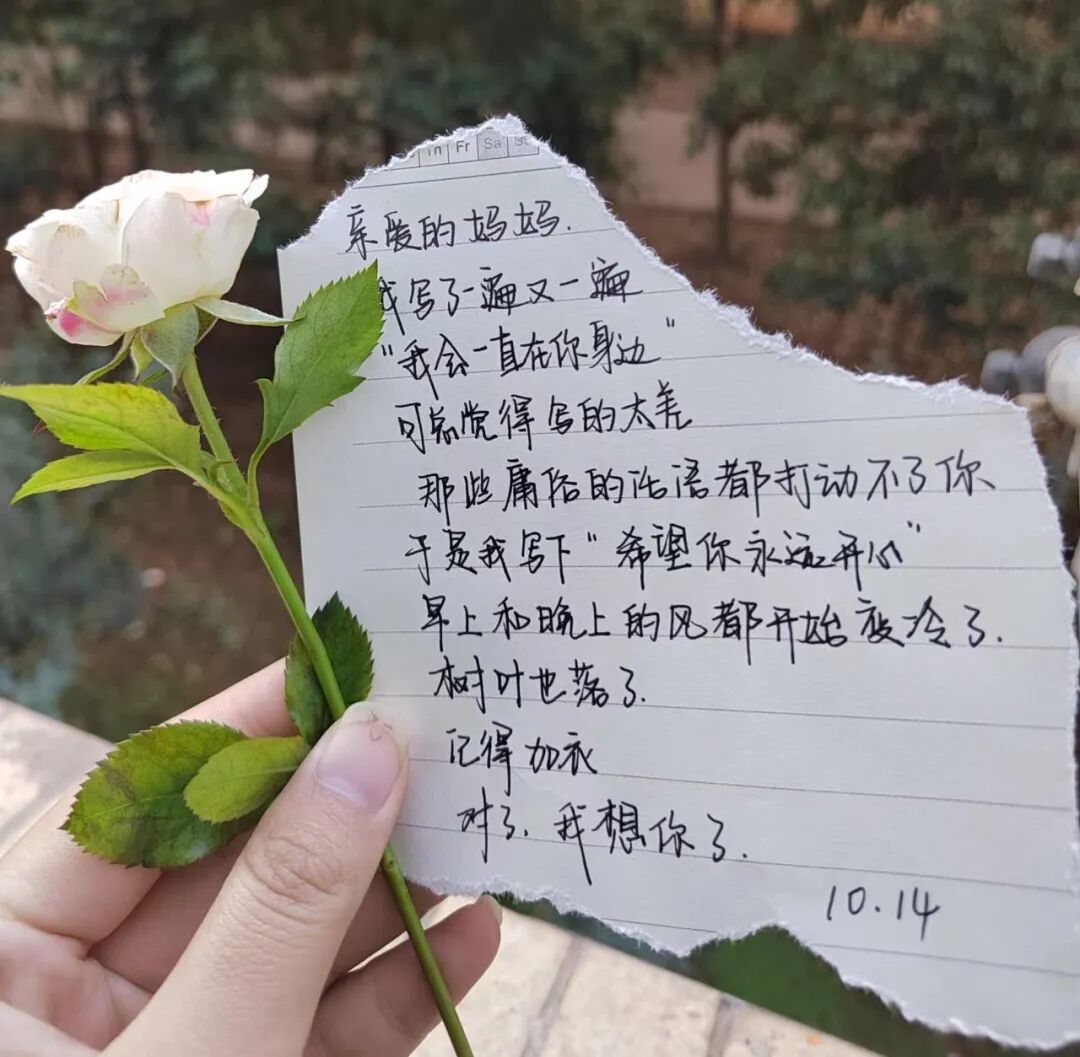 Fr Sa
亲爱的妈妈.
我写了一遍又一遍
"我会一直在你身边"
可总觉得写的太差
那些庸俗的话语都打动不了你
于是我写下"希望你永远开心"
早上和晚上的风都开始变冷了.
树叶也落了.
记得加衣
对了.我想你了.
10.14